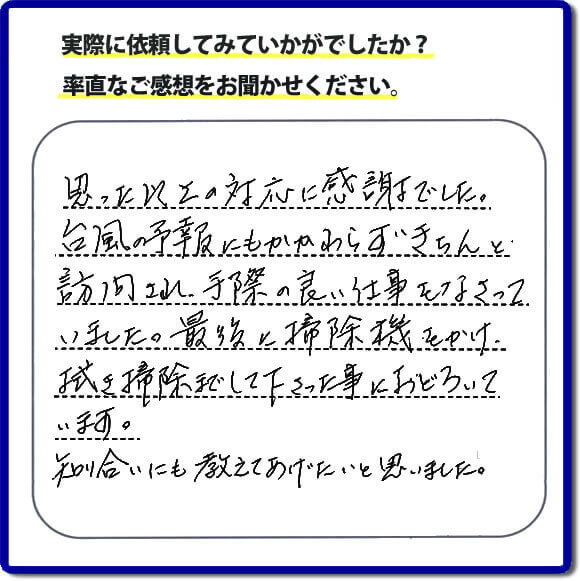 実際に依頼してみていかがでしたか？
率直なご感想をお聞かせください。
思った以上の対応に感謝でした。
台風の予報にもかかわらずきちんと
訪問され、手際の良い仕事をなさって
いました。最後に掃除機をかけ、
拭き掃除までして下さった事におどろいて
います。
知り合いにも教えてあげたいと思いました。